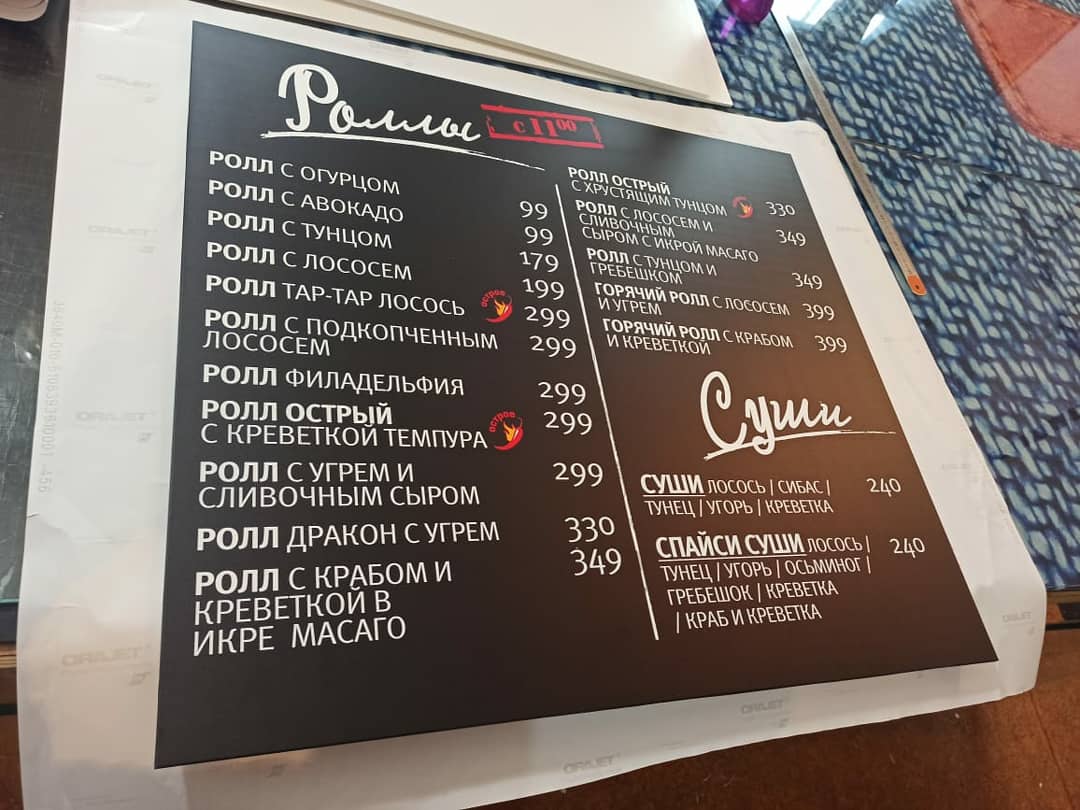 Роллы
с 11⁰⁰
РОЛЛ С ОГУРЦОМ 99
РОЛЛ С АВОКАДО 99
РОЛЛ С ТУНЦОМ 179
РОЛЛ С ЛОСОСЕМ 199
РОЛЛ ТАР-ТАР ЛОСОСЬ острое 299
РОЛЛ С ПОДКОПЧЕННЫМ 299
ЛОСОСЕМ
РОЛЛ ФИЛАДЕЛЬФИЯ 299
РОЛЛ ОСТРЫЙ 299
С КРЕВЕТКОЙ ТЕМПУРА острое
РОЛЛ С УГРЕМ И 299
СЛИВОЧНЫМ СЫРОМ
РОЛЛ ДРАКОН С УГРЕМ 330
РОЛЛ С КРАБОМ И 349
КРЕВЕТКОЙ В
ИКРЕ МАСАГО
РОЛЛ ОСТРЫЙ
С ХРУСТЯЩИМ ТУНЦОМ 330
РОЛЛ С ЛОСОСЕМ И 349
СЛИВОЧНЫМ
СЫРОМ С ИКРОЙ МАСАГО
РОЛЛ С ТУНЦОМ И 349
ГРЕБЕШКОМ
ГОРЯЧИЙ РОЛЛ С ЛОСОСЕМ 399
И УГРЕМ
ГОРЯЧИЙ РОЛЛ С КРАБОМ 399
И КРЕВЕТКОЙ
Суши
СУШИ ЛОСОСЬ / СИБАС / 240
ТУНЕЦ / УГОРЬ / КРЕВЕТКА
СПАЙСИ СУШИ ЛОСОСЬ / 240
ТУНЕЦ / УГОРЬ / ОСЬМИНОГ /
ГРЕБЕШОК / КРЕВЕТКА
/ КРАБ И КРЕВЕТКА
ORAJET
ORAJET
ORAJET
ORAJET
ORAJET
ORAJET